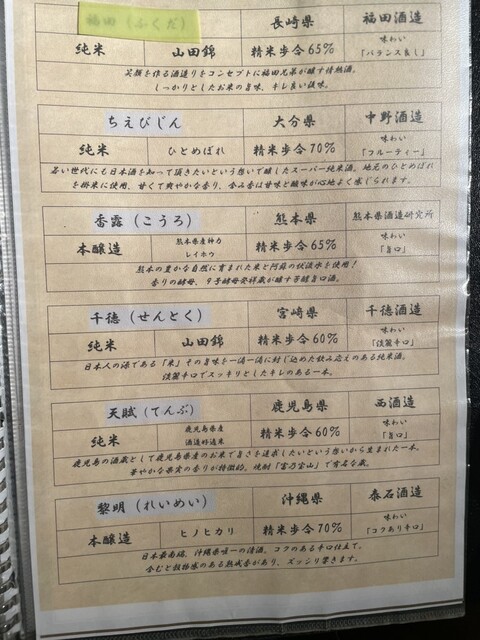 福田（ふくだ） 長崎県 福田酒造
純米 山田錦 精米歩合65% 味わい「バランス良し」
笑顔を作る酒造りをコンセプトに福田兄弟が醸す情熱酒。
しっかりとしたお米の旨味、キレ良い後味。
ちえびじん 大分県 中野酒造
純米 ひとめぼれ 精米歩合70% 味わい「フルーティー」
若い世代にも日本酒を知って頂きたいという想いで醸したスーパー純米酒。地元のひとめぼれ
を掛米に使用、甘くて爽やかな香り、含み香は甘味と酸味が心地よく感じられます。
香露（こうろ） 熊本県 熊本県酒造研究所
本醸造 熊本県産神力 レイホウ 精米歩合65% 味わい「旨口」
熊本の豊かな自然に育まれた米と阿蘇の伏流水を使用！
香りの酵母、9号酵母発祥蔵が醸す芳醇旨口酒。
千徳（せんとく） 宮崎県 千徳酒造
純米 山田錦 精米歩合60% 味わい「淡麗辛口」
日本人の源である「米」その旨味を一滴一滴に封じ込めた飲み応えのある純米酒。
淡麗辛口でスッキリとしたキレのある一本。
天賦（てんぶ） 鹿児島県 西酒造
純米 鹿児島県産 酒造好適米 精米歩合60% 味わい「旨口」
鹿児島の酒蔵として鹿児島県産のお米で旨さを追求したいという想いから生まれた一本。
華やかな果実の香りが特徴的。焼酎「富乃宝山」で有名な蔵。
黎明（れいめい） 沖縄県 泰石酒造
本醸造 ヒノヒカリ 精米歩合70% 味わい「コクあり辛口」
日本最南端、沖縄県唯一の清酒。コクのある辛口仕立て。
含むと穀物感のある熟成香があり、ズッシリ響きます。